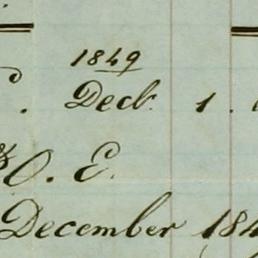 1849
Decbr. 1.
O. E.
December 184